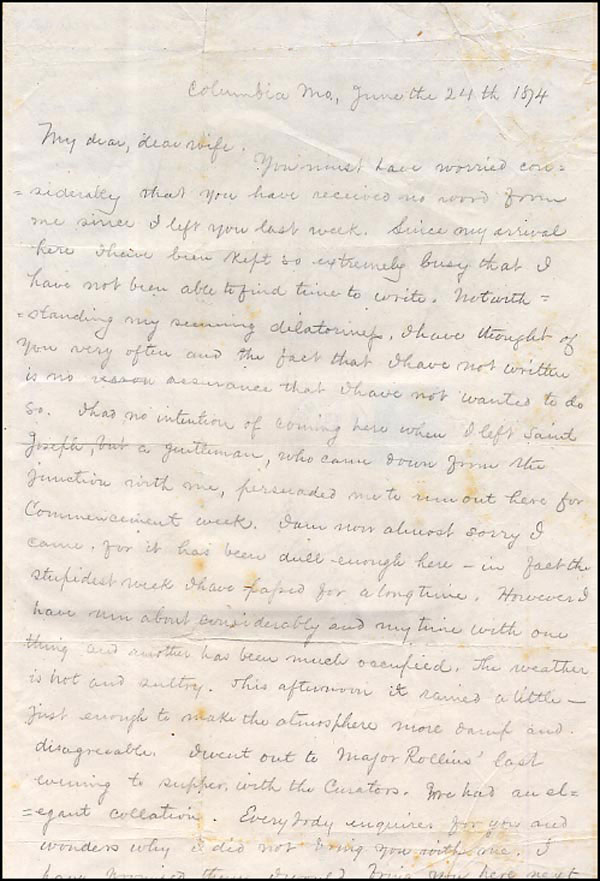 Columbia Mo., June the 24th 1874
My dear, dear wife.
You must have worried con=
=siderably that you have received no word from
me since I left you last week. Since my arrival
here I have been kept so extremely busy that I
have not been able to find time to write. Notwith=
=standing my seeming dilatoriness, I have thought of
you very often and the fact that I have not written
is no reason assurance that I have not wanted to do
so. I had no intention of coming here when I left Saint
Joseph, but a gentleman, who came down from the
junction with me, persuaded me to run out here for
Commencement week. I am now almost sorry I
came, for it has been dull enough here – in fact the
stupidest week I have passed for a long time. However I
have run about considerably and my time with one
thing and another has been much occupied. The weather
is hot and sultry. This afternoon it rained a little –
just enough to make the atmosphere more damp and
disagreeable. I went out to Major Rollins' last
evening to supper, with the Curators. We had an el=
=egant collation. Everybody enquires for you and
wonders why I did not bring you with me. I
have promised them I would bring you here next